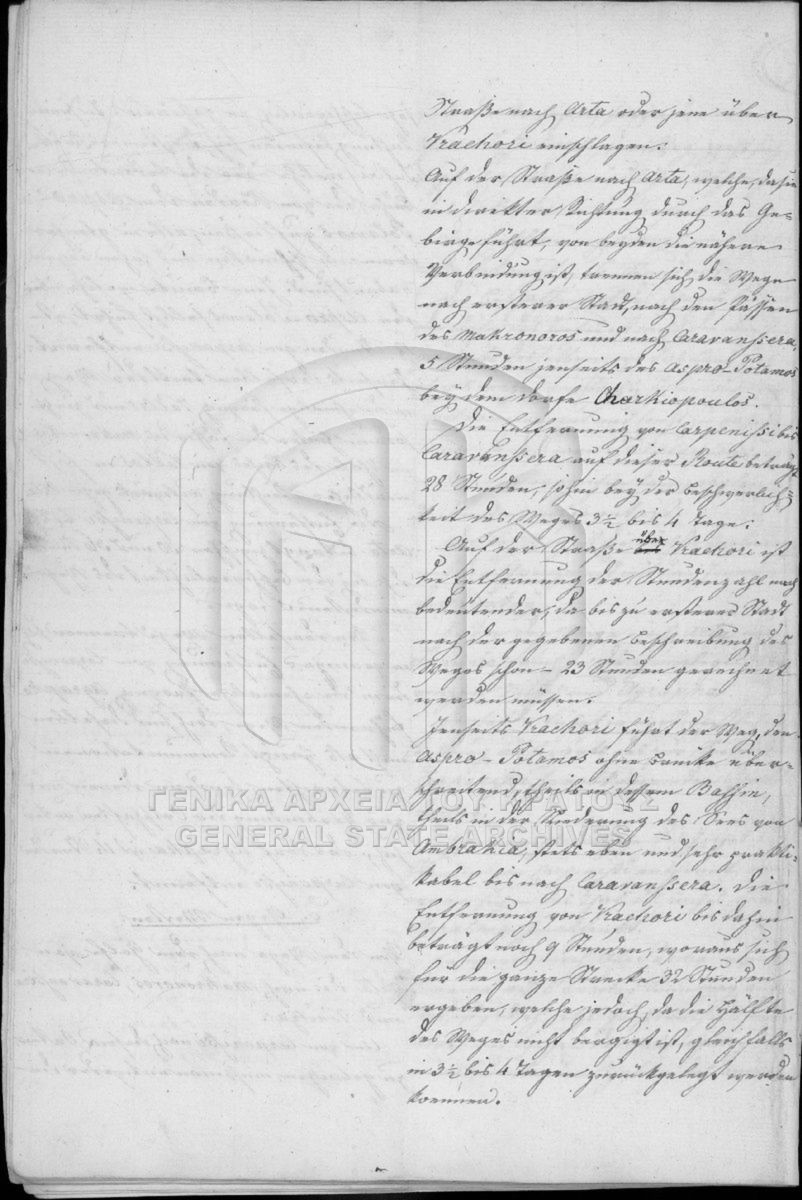 Straße nach Arta oder jene über
Vrachori einschlagen.
Auf der Straße nach Arta, welche, da sie
in direkter Richtung durch das Ge-
birge führt, von beyden die nähere
Verbindung ist, trennen sich die Wege
nach ersterer Stadt, nach den Pässen
des Makronoros und nach Caravanssera,
5 Stunden jenseits des Aspro-Potamos
bey dem Dorfe Charkiopoulos.
Die Entfernung von Carpenissi bis
Caravanssera auf dieser Route beträgt
28 Stunden, sohin bey der Beschwerlich-
keit des Weges 3½ bis 4 Tage.
Auf der Straße über Vrachori ist
die Entfernung der Stundenzahl nach
bedeutender, da bis zu ersterer Stadt
nach der gegebenen Beschreibung des
Weges schon - 23 Stunden gerechnet
werden müssen.
Jenseits Vrachori führt der Weg, den
Aspro-Potamos ohne Brücke über-
schreitend, theils in dessem Bassin,
theils in der Niederung des Sees von
Ambrakia, stets eben und sehr prakti-
kabel bis nach Caravanssera. Die
Entfernung von Vrachori bis dahin
beträgt noch 9 Stunden, woraus sich
für die ganze Strecke 32 Stunden
ergeben, welche jedoch, da die Hälfte
des Weges nicht bergigt ist, gleichfalls
in 3½ bis 4 Tagen zurückgelegt werden
koennen.
ΓΕΝΙΚΑ ΑΡΧΕΙΑ ΤΟΥ ΚΡΑΤΟΥΣ
GENERAL STATE ARCHIVES